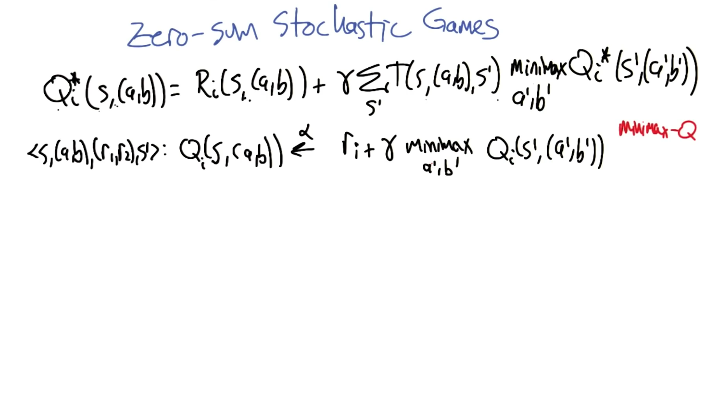 Zero-sum Stochastic Games
Qi*(s,(a,b)) = Ri(s,(a,b)) + γ Σs' T(s,(a,b),s') minimax a',b' Qi*(s',(a',b'))
<s,(a,b),(r1,r2),s'>: Qi(s,(a,b)) ←α ri + γ minimax a',b' Qi(s',(a',b'))
minimax-Q